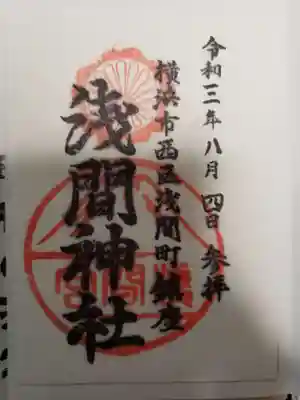 令和三年八月四日 参拝
横浜市西区浅間町鎮座
浅間神社